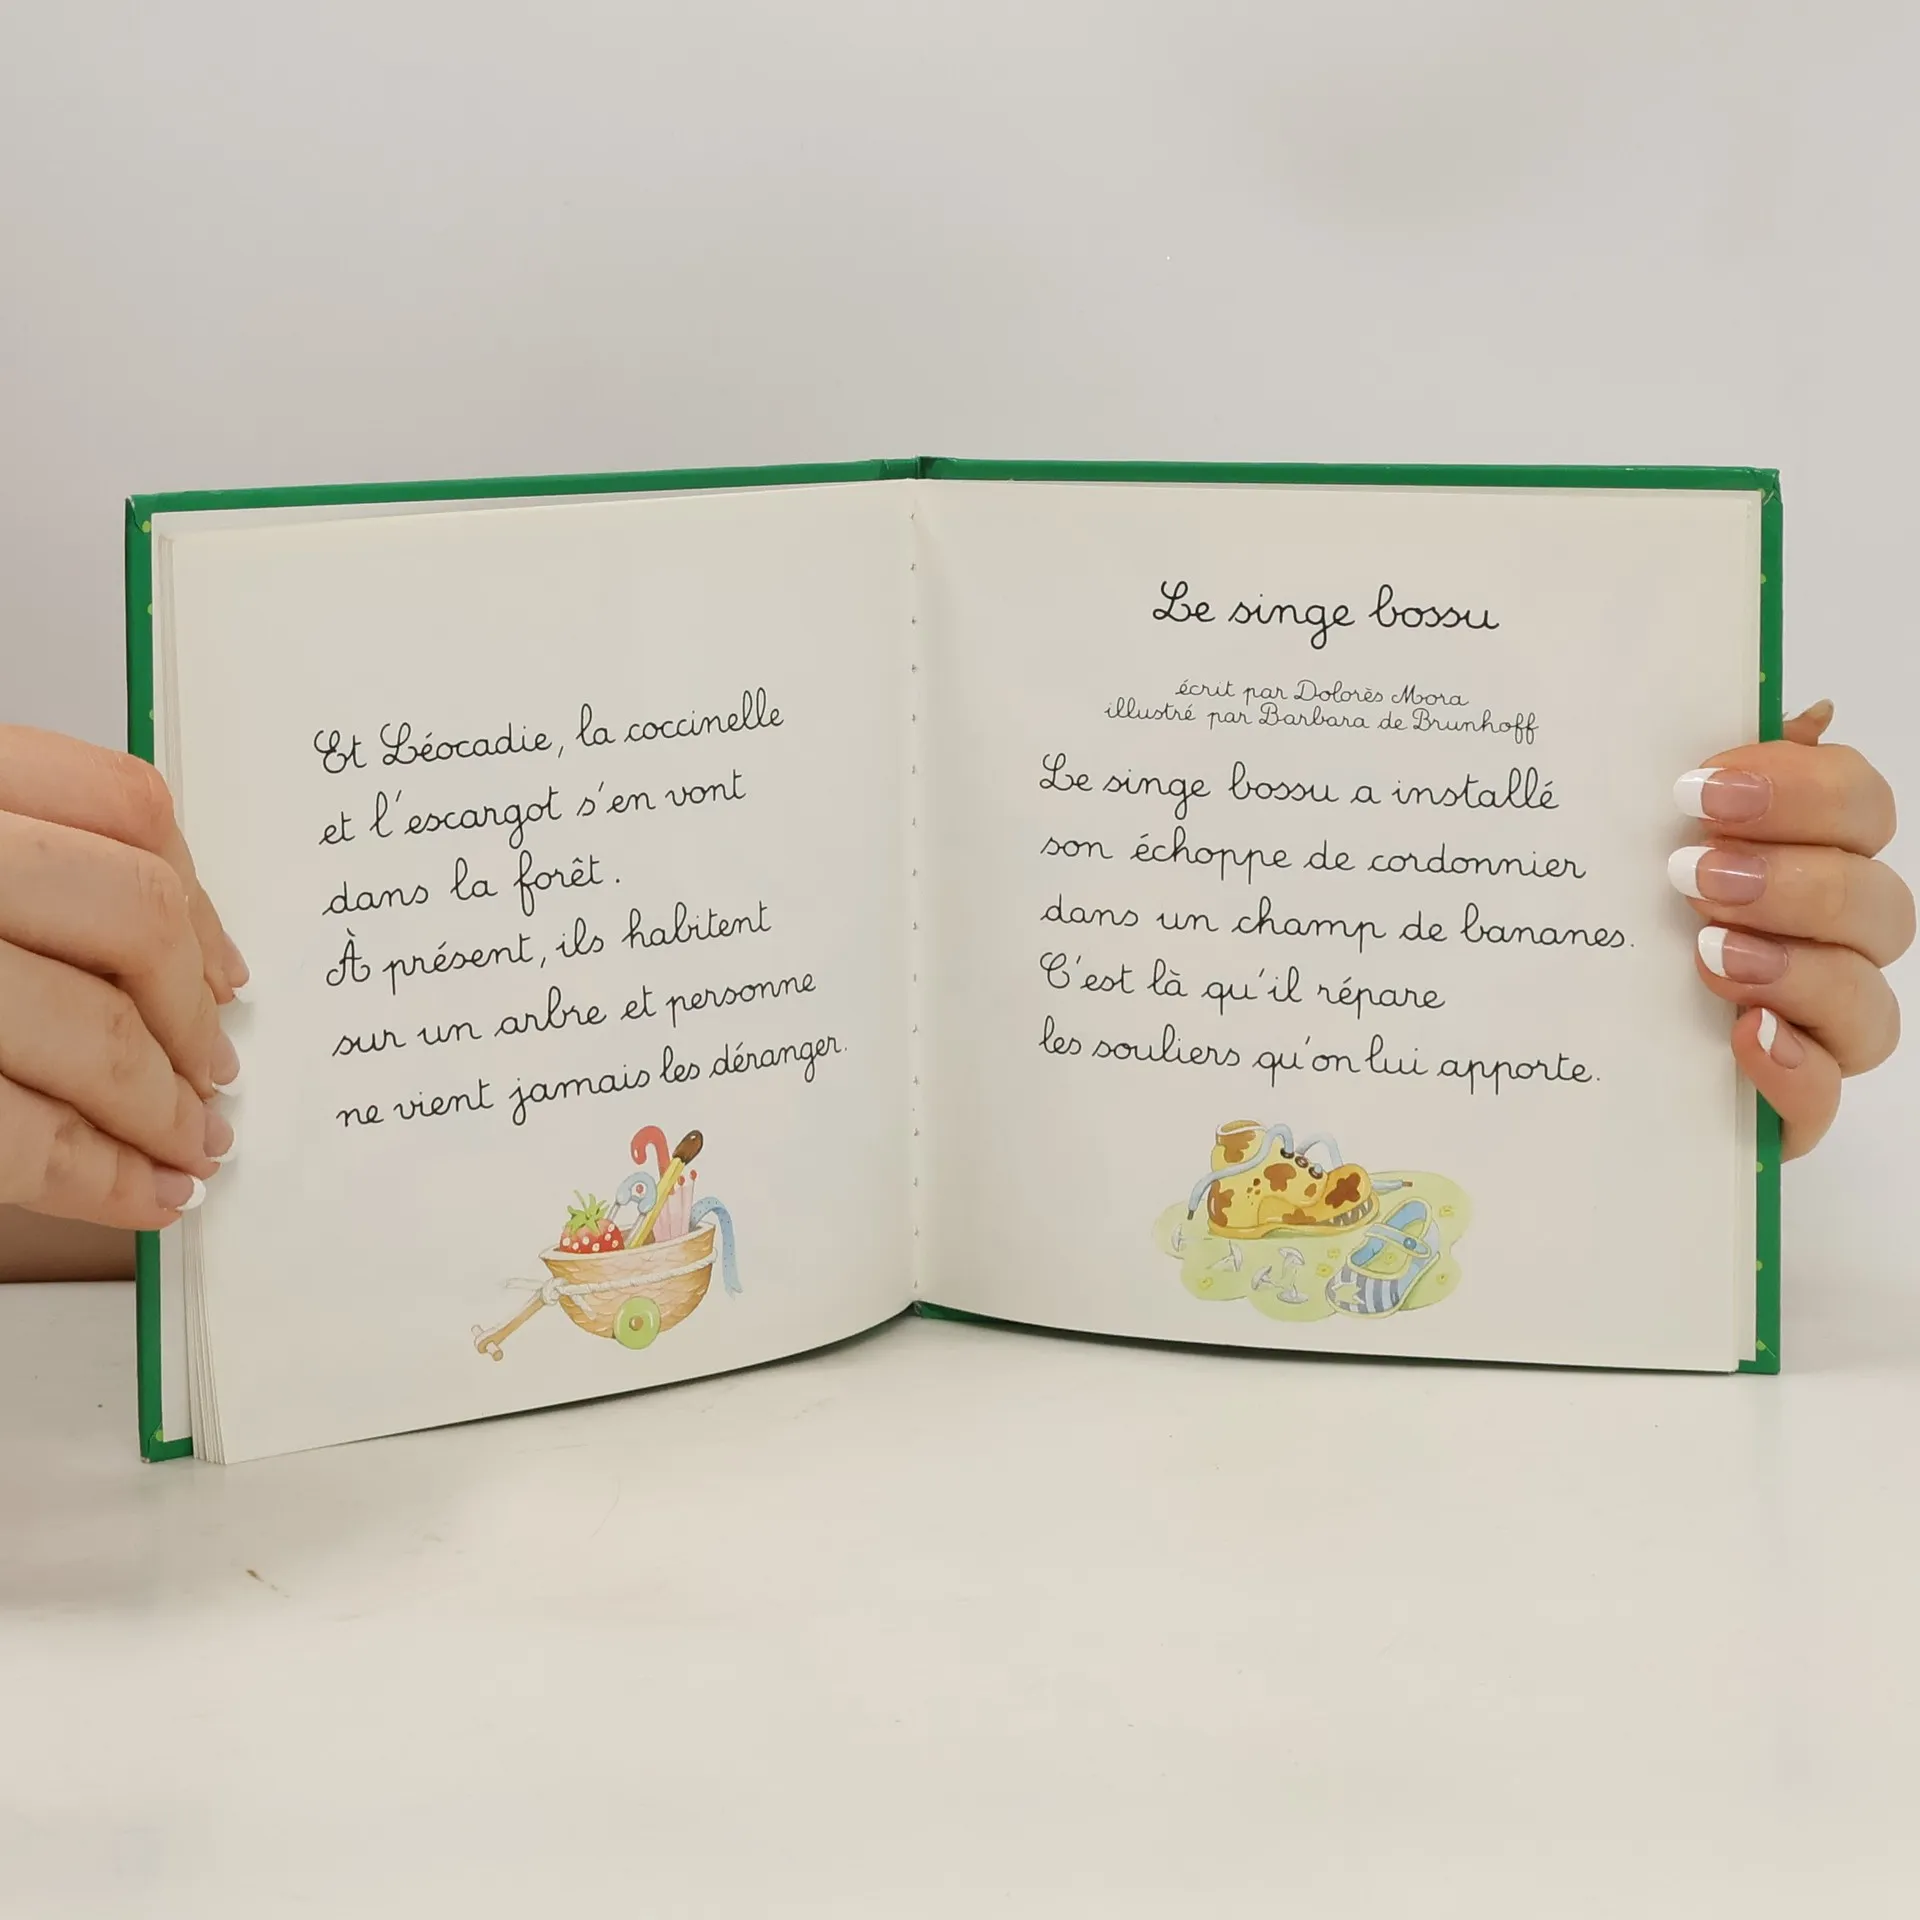 Et Léocadie, la coccinelle
et l'escargot s'en vont
dans la forêt.
À présent, ils habitent
sur un arbre et personne
ne vient jamais les déranger.
Le singe bossu
écrit par Dolorès Mora
illustré par Barbara de Brunhoff
Le singe bossu a installé
son échoppe de cordonnier
dans un champ de bananes.
C'est là qu'il répare
les souliers qu'on lui apporte.